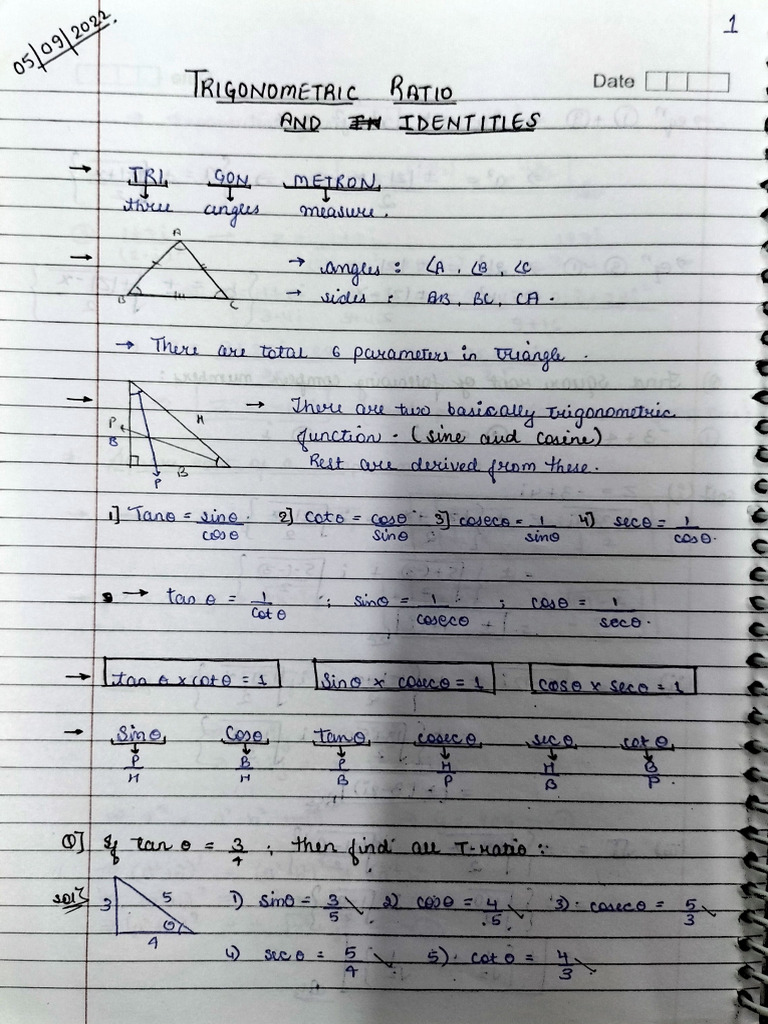 05/09/2022
1
Date
TRIGONOMETRIC RATIO
AND IDENTITIES
→ TRI GON METRON
three angles measure.
A
B C
→ angles : ∠A, ∠B, ∠C
→ sides : AB, BC, CA.
→ There are total 6 parameters in triangle.
P B H B P
→ There are two basically trigonometric
function. (sine and cosine)
Rest are derived from these.
1] Tanθ = sinθ/cosθ. 2] cotθ = cosθ/sinθ 3] cosecθ = 1/sinθ 4] secθ = 1/cosθ.
→ tan θ = 1/cot θ ; sinθ = 1/cosecθ ; cosθ = 1/secθ.
→ tan θ x cot θ = 1 Sin θ x cosec θ = 1 cosθ x sec θ = 1
→ Sinθ Cosθ tanθ cosecθ secθ cot θ
P/H B/H P/B H/P H/B B/P.
Q] If tan θ = 3/4 ; then find all T-ratio :-
solⁿ 3 5 4 θ 1) sinθ = 3/5 2) cosθ = 4/5 3). cosecθ = 5/3
4) sec θ = 5/4 5). cot θ = 4/3